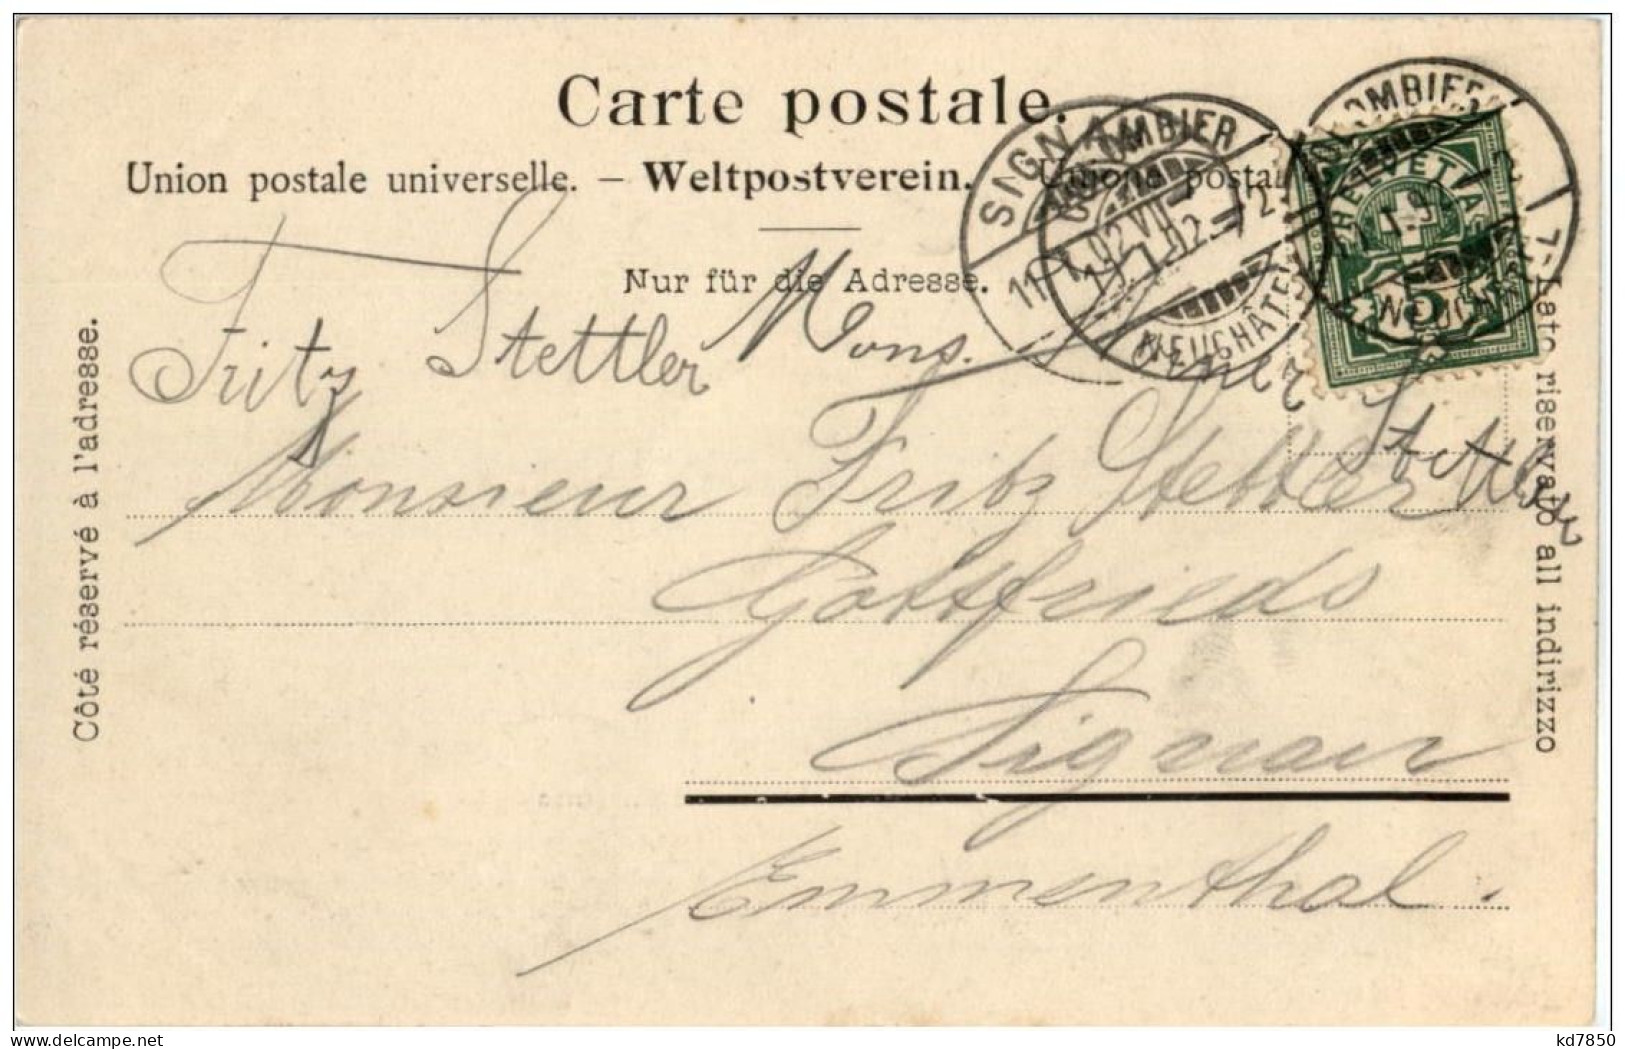 Carte postale.
Union postale universelle. – Weltpostverein. – Unione postale
Nur für die Adresse.
Côté réservé à l'adresse.
Lato riservato all indirizzo
SIGNAU
11. VII. 02 VII
COLOMBIER
NEUCHÂTEL
COLOMBIER
HELVETIA
5
Fritz Stettler Mons.
Stettler
Monsieur Fritz Stettler
Gottfrieds
Signau
Emmenthal.
kd7850